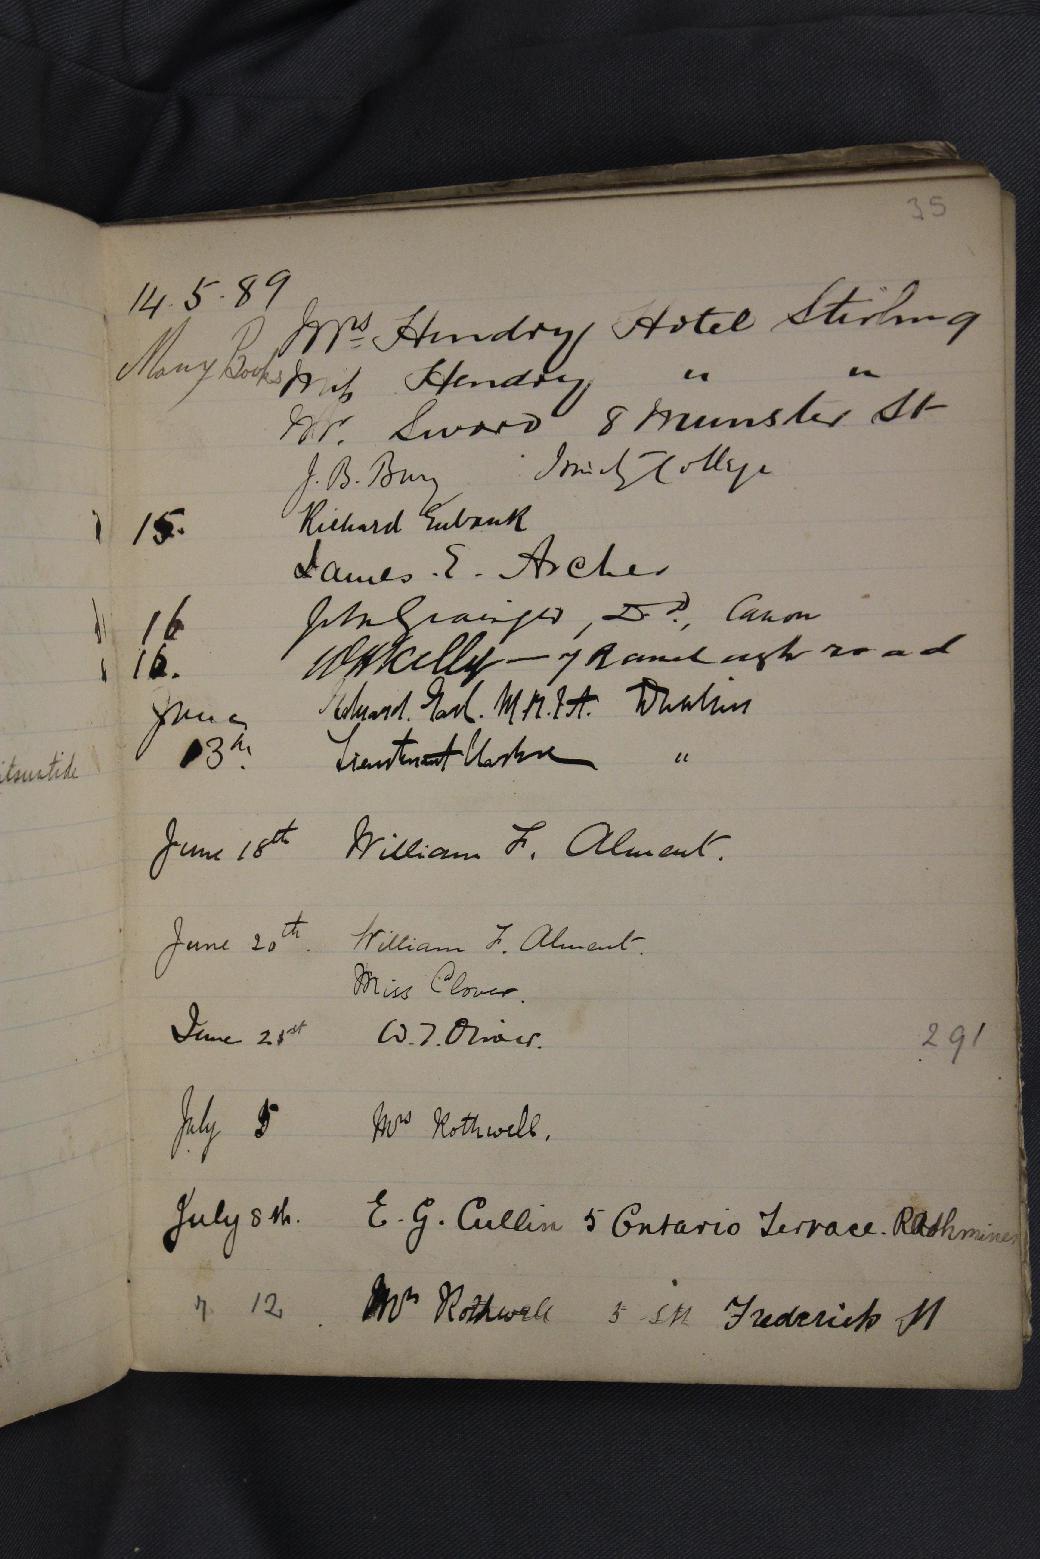 35
14.5.89
Mrs Hendry Hotel Stirling
Many Books
Miss Hendry " "
Mr. Sword 8 Munster St
J. B. Bury Trinity College
15. Richard Eubank
James. E. Archer
16 John Grainger, D.D., Canon
16. W H Kelly — 7 Ranelagh road
June Edward. M.R.I.A. Dublin
13th. Lieutenant "
itsuntide
June 18th William F. Alment.
June 20th. William F. Alment.
Miss Clover.
June 21st W. T. Oliver.
291
July 5 Mrs Rothwell.
July 8th. E. G. Cullin 5 Ontario Terrace. Rathmines
7 12. Mrs Rothwell 5 Sth Frederick St